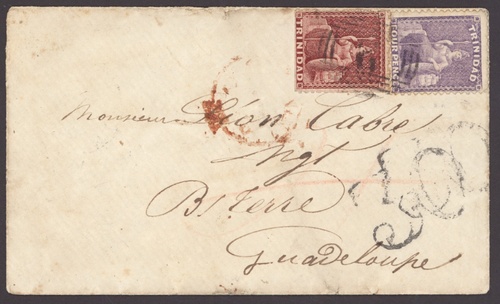 TRINIDAD
FOUR PENCE
TRINIDAD
Monsieur Léon Cabre
Ngt
Bsterre
Guadeloupe